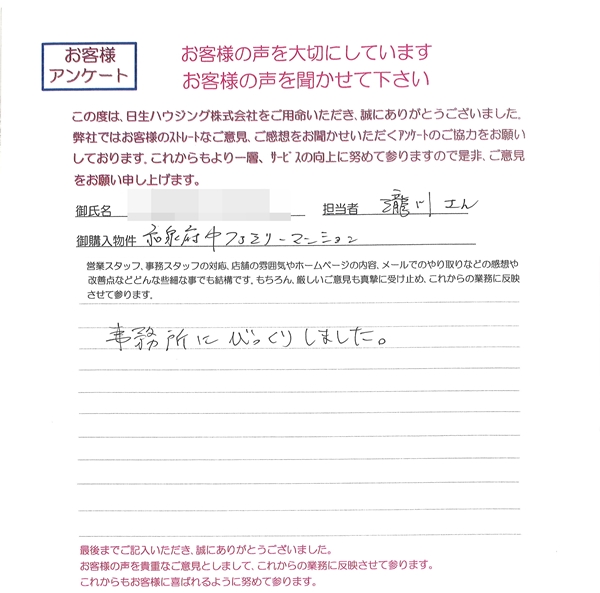 お客様
アンケート
お客様の声を大切にしています
お客様の声を聞かせて下さい
この度は、日生ハウジング株式会社をご用命いただき、誠にありがとうございました。
弊社ではお客様のストレートなご意見、ご感想をお聞かせいただくアンケートのご協力をお願い
しております。これからもより一層、サービスの向上に努めて参りますので是非、ご意見
をお願い申し上げます。
御氏名 担当者 瀧川さん
御購入物件 和泉府中ファミリーマンション
営業スタッフ、事務スタッフの対応、店舗の雰囲気やホームページの内容、メールでのやり取りなどの感想や
改善点などどんな些細な事でも結構です。もちろん、厳しいご意見も真摯に受け止め、これからの業務に反映
させて参ります。
事務所にびっくりしました。
最後までご記入いただき、誠にありがとうございました。
お客様の声を貴重なご意見としまして、これからの業務に反映させて参ります。
これからもお客様に喜ばれるように努めて参ります。